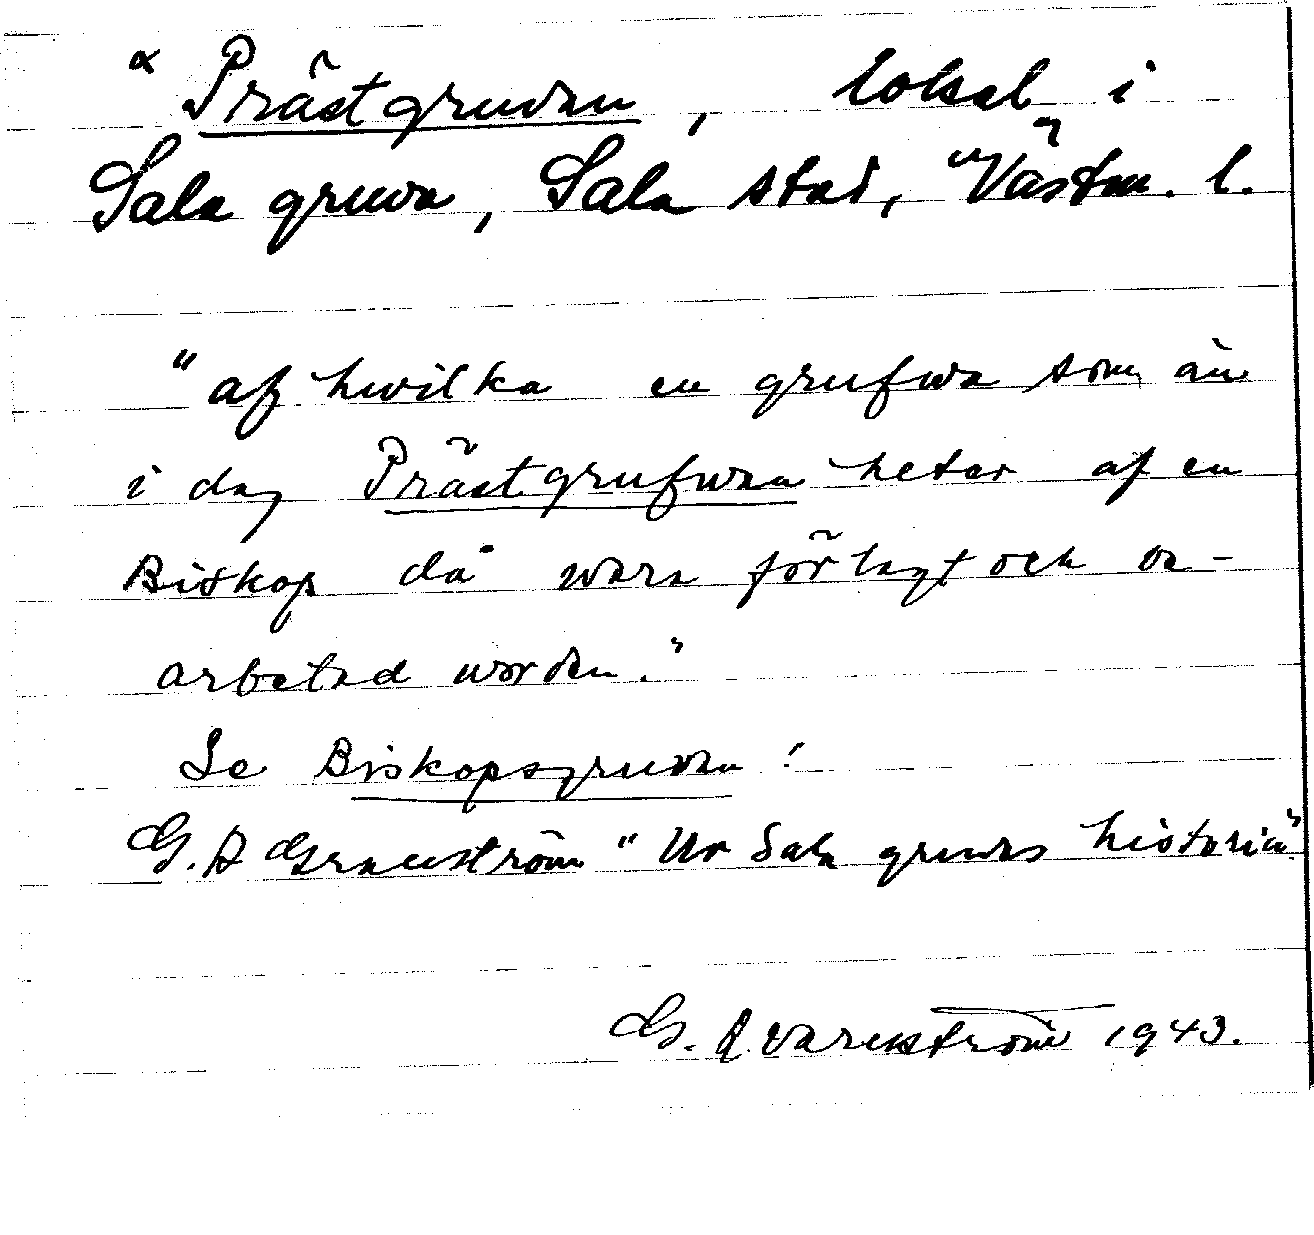 " Prästgruvan, lokal i
Sala gruva, Sala stad, Västm. l.
"af hwilka en grufwa som än
i dag Prästgrufwan heter af en
Biskop då wara förlagt och or-
arbetad worden."
Se Biskopsgruvan!
G. A Granström "Ur Sala gruvas historia".
G. Qvarnström 1943.